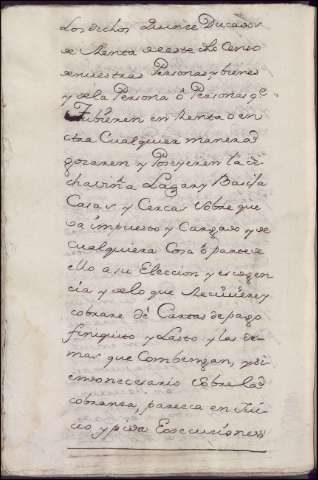 Los dichos Quince Ducados
de Renta de este dho Censo
de nuestras Personas y bienes
y de la Persona ô Personas qe
tubieren en Renta o en
otra Cualquier manera
gozaren y Poseyeren la di
cha viña Lagar y Basija
Casas y Cerca sobre que
va impuesto y Cargado y de
cualquiera Cosa ô parte de
ello a su Eleccion y escogen
cia y de lo que Recivière y
cobrare dé Cartas de pago
finiquito y Lasto y las de
mas que Combengan, y si
cobranza, paresca en Jui
cio y pida Execuciones